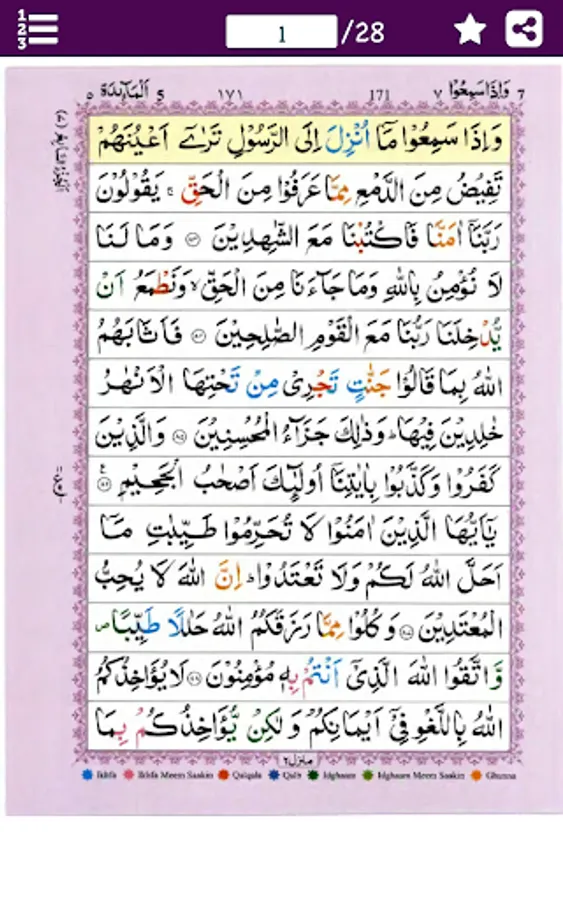 1
2
3
1 /28
٧ وَاِذَا سَمِعُوْا ٧ 171 ١٧١ 5 اَلْمَآئِدَة ٥
وَاِذَا سَمِعُوْا مَآ اُنْزِلَ اِلَى الرَّسُوْلِ تَرٰٓى اَعْيُنَهُمْ
تَفِيْضُ مِنَ الدَّمْعِ مِمَّا عَرَفُوْا مِنَ الْحَقِّ ۚ يَقُوْلُوْنَ
رَبَّنَآ اٰمَنَّا فَاكْتُبْنَا مَعَ الشّٰهِدِيْنَ ﴿۸۳﴾ وَمَا لَنَا
لَا نُؤْمِنُ بِاللّٰهِ وَمَا جَآءَنَا مِنَ الْحَقِّ ۙ وَنَطْمَعُ اَنْ
يُّدْخِلَنَا رَبُّنَا مَعَ الْقَوْمِ الصّٰلِحِيْنَ ﴿۸۴﴾ فَاَثَابَهُمُ
اللّٰهُ بِمَا قَالُوْا جَنّٰتٍ تَجْرِيْ مِنْ تَحْتِهَا الْاَنْهٰرُ
خٰلِدِيْنَ فِيْهَا ؕ وَذٰلِكَ جَزَآءُ الْمُحْسِنِيْنَ ﴿۸۵﴾ وَالَّذِيْنَ
كَفَرُوْا وَكَذَّبُوْا بِاٰيٰتِنَآ اُولٰٓئِكَ اَصْحٰبُ الْجَحِيْمِ ﴿۸۶﴾ ع
يٰٓاَيُّهَا الَّذِيْنَ اٰمَنُوْا لَا تُحَرِّمُوْا طَيِّبٰتِ مَآ
اَحَلَّ اللّٰهُ لَكُمْ وَلَا تَعْتَدُوْا ؕ اِنَّ اللّٰهَ لَا يُحِبُّ
الْمُعْتَدِيْنَ ﴿۸۷﴾ وَكُلُوْا مِمَّا رَزَقَكُمُ اللّٰهُ حَلٰلًا طَيِّبًا ص
وَّاتَّقُوا اللّٰهَ الَّذِيْٓ اَنْتُمْ بِهٖ مُؤْمِنُوْنَ ﴿۸۸﴾ لَا يُؤَاخِذُكُمُ
اللّٰهُ بِاللَّغْوِ فِيْٓ اَيْمَانِكُمْ وَلٰكِنْ يُّؤَاخِذُكُمْ بِمَا
منزل ٢
Ikhfa Ikhfa Meem Saakin Qalqala Qalb Idghaam Idghaam Meem Saakin Ghunna